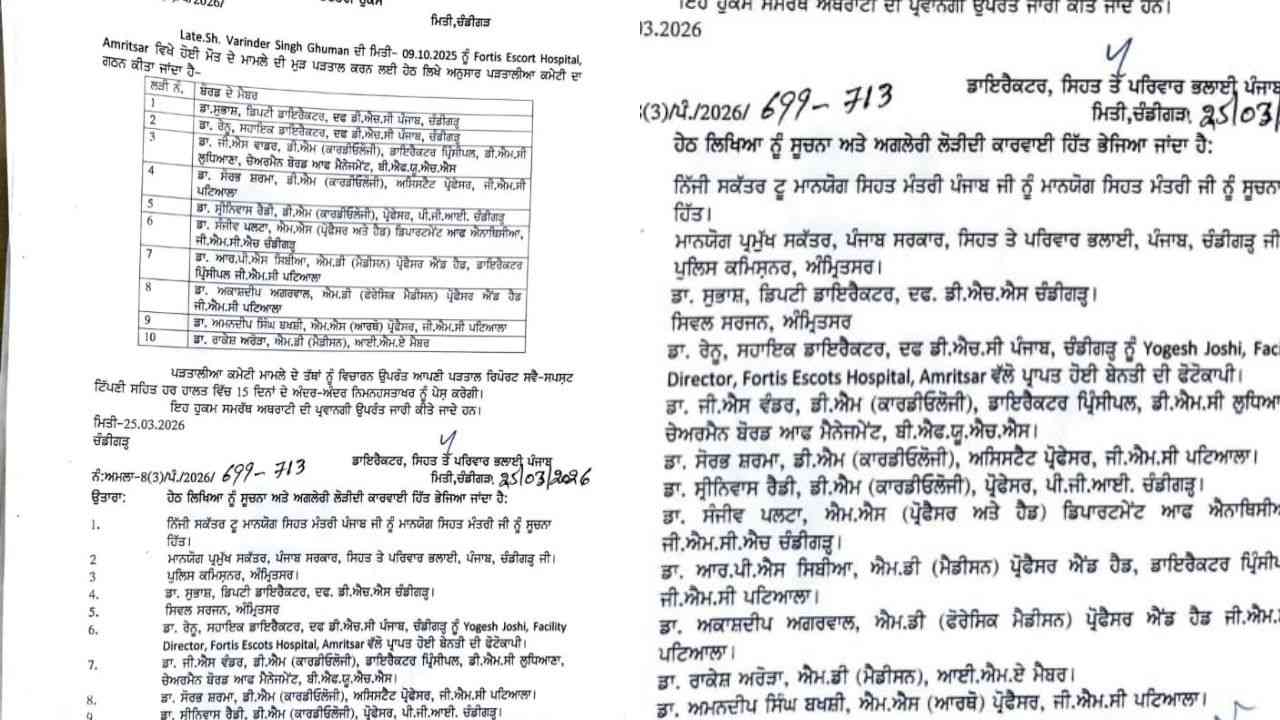 ਮਿਤੀ,ਚੰਡੀਗੜ੍ਹ
Late.Sh. Varinder Singh Ghuman ਦੀ ਮਿਤੀ- 09.10.2025 ਨੂੰ Fortis Escort Hospital,
Amritsar ਵਿਖੇ ਹੋਈ ਮੌਤ ਦੇ ਮਾਮਲੇ ਦੀ ਮੁੜ ਪੜਤਾਲ ਕਰਨ ਲਈ ਹੇਠ ਲਿਖੇ ਅਨੁਸਾਰ ਪੜਤਾਲੀਆ ਕਮੇਟੀ ਦਾ
ਗਠਨ ਕੀਤਾ ਜਾਂਦਾ ਹੈ-
ਲੜੀ ਨੰ. ਬੋਰਡ ਦੇ ਮੈਂਬਰ
1 ਡਾ.ਸੁਭਾਸ਼, ਡਿਪਟੀ ਡਾਇਰੈਕਟਰ, ਦਫ ਡੀ.ਐਚ.ਸੀ ਪੰਜਾਬ, ਚੰਡੀਗੜ੍ਹ
2 ਡਾ. ਰੇਨੂ, ਸਹਾਇਕ ਡਾਇਰੈਕਟਰ, ਦਫ ਡੀ.ਐਚ.ਸੀ ਪੰਜਾਬ, ਚੰਡੀਗੜ੍ਹ
3 ਡਾ. ਜੀ.ਐਸ ਵਾਂਡਰ, ਡੀ.ਐਮ (ਕਾਰਡੀਓਲੋਜੀ), ਡਾਇਰੈਕਟਰ ਪ੍ਰਿੰਸੀਪਲ, ਡੀ.ਐਮ.ਸੀ
ਲੁਧਿਆਣਾ, ਚੇਅਰਮੈਨ ਬੋਰਡ ਆਫ ਮੈਨੇਜਮੇਂਟ, ਬੀ.ਐਫ.ਯੂ.ਐਚ.ਐਸ
4 ਡਾ. ਸੋਰਭ ਸ਼ਰਮਾ, ਡੀ.ਐਮ (ਕਾਰਡੀਓਲੋਜੀ), ਅਸਿਸਟੈਟ ਪ੍ਰੋਫੇਸਰ, ਜੀ.ਐਮ.ਸੀ
ਪਟਿਆਲਾ
5 ਡਾ. ਸ੍ਰੀਨਿਵਾਸ ਰੈਡੀ, ਡੀ.ਐਮ (ਕਾਰਡੀਓਲੋਜੀ), ਪ੍ਰੋਫੇਸਰ, ਪੀ.ਜੀ.ਆਈ. ਚੰਡੀਗੜ੍ਹ
6 ਡਾ. ਸੰਜੀਵ ਪਲਟਾ, ਐਮ.ਐਸ (ਪ੍ਰੋਫੈਸਰ ਅਤੇ ਹੈਡ) ਡਿਪਾਰਟਮੇਂਟ ਆਫ ਐਨਾਥਿਸੀਆ,
ਜੀ.ਐਮ.ਸੀ.ਐਚ ਚੰਡੀਗੜ੍ਹ
7 ਡਾ. ਆਰ.ਪੀ.ਐਸ ਸਿਬੀਆ, ਐਮ.ਡੀ (ਮੈਡੀਸਨ) ਪ੍ਰੋਫੈਸਰ ਐਂਡ ਹੈਡ, ਡਾਇਰੈਕਟਰ
ਪ੍ਰਿੰਸੀਪਲ ਜੀ.ਐਮ.ਸੀ ਪਟਿਆਲਾ
8 ਡਾ. ਅਕਾਸ਼ਦੀਪ ਅਗਰਵਾਲ, ਐਮ.ਡੀ (ਫੋਰੇਸਿਕ ਮੈਡੀਸਨ) ਪ੍ਰੋਫੈਸਰ ਐਂਡ ਹੈਡ
ਜੀ.ਐਮ.ਸੀ ਪਟਿਆਲਾ
9 ਡਾ. ਅਮਨਦੀਪ ਸਿੰਘ ਬਖਸ਼ੀ, ਐਮ.ਐਸ (ਆਰਥੋ) ਪ੍ਰੋਫੈਸਰ, ਜੀ.ਐਮ.ਸੀ ਪਟਿਆਲਾ
10 ਡਾ. ਰਾਕੇਸ਼ ਅਰੋੜਾ, ਐਮ.ਡੀ (ਮੈਡੀਸਨ), ਆਈ.ਐਮ.ਏ ਮੈਂਬਰ
ਪੜਤਾਲੀਆ ਕਮੇਟੀ ਮਾਮਲੇ ਦੇ ਤੱਥਾਂ ਨੂੰ ਵਿਚਾਰਨ ਉਪਰੰਤ ਆਪਣੀ ਪੜਤਾਲ ਰਿਪੋਰਟ ਸਵੈ-ਸਪਸ਼ਟ
ਟਿੱਪਣੀ ਸਹਿਤ ਹਰ ਹਾਲਤ ਵਿੱਚ 15 ਦਿਨਾਂ ਦੇ ਅੰਦਰ-ਅੰਦਰ ਨਿਮਨਹਸਤਾਖਰ ਨੂੰ ਪੇਸ਼ ਕਰੇਗੀ।
ਇਹ ਹੁਕਮ ਸਮਰੱਥ ਅਥਰਾਟੀ ਦੀ ਪ੍ਰਵਾਨਗੀ ਉਪਰੰਤ ਜਾਰੀ ਕੀਤੇ ਜਾਂਦੇ ਹਨ।
ਮਿਤੀ-25.03.2026
ਚੰਡੀਗੜ੍ਹ
ਡਾਇਰੈਕਟਰ, ਸਿਹਤ ਤੇ ਪਰਿਵਾਰ ਭਲਾਈ ਪੰਜਾਬ
ਨੰ:ਅਮਲਾ-8(3)/ਪੰ./2026/ 699-713 ਮਿਤੀ,ਚੰਡੀਗੜ੍ਹ 25/03/2026
ਉਤਾਰਾ: ਹੇਠ ਲਿਖਿਆ ਨੂੰ ਸੂਚਨਾ ਅਤੇ ਅਗਲੇਰੀ ਲੋੜੀਦੀ ਕਾਰਵਾਈ ਹਿੱਤ ਭੇਜਿਆ ਜਾਂਦਾ ਹੈ:
1. ਨਿੱਜੀ ਸਕੱਤਰ ਟੂ ਮਾਨਯੋਗ ਸਿਹਤ ਮੰਤਰੀ ਪੰਜਾਬ ਜੀ ਨੂੰ ਮਾਨਯੋਗ ਸਿਹਤ ਮੰਤਰੀ ਜੀ ਨੂੰ ਸੂਚਨਾ
ਹਿੱਤ।
2 ਮਾਨਯੋਗ ਪ੍ਰਮੁੱਖ ਸਕੱਤਰ, ਪੰਜਾਬ ਸਰਕਾਰ, ਸਿਹਤ ਤੇ ਪਰਿਵਾਰ ਭਲਾਈ, ਪੰਜਾਬ, ਚੰਡੀਗੜ੍ਹ ਜੀ।
3 ਪੁਲਿਸ ਕਮਿਸ਼ਨਰ, ਅੰਮ੍ਰਿਤਸਰ।
4. ਡਾ. ਸੁਭਾਸ਼, ਡਿਪਟੀ ਡਾਇਰੈਕਟਰ, ਦਫ. ਡੀ.ਐਚ.ਐਸ ਚੰਡੀਗੜ੍ਹ।
5. ਸਿਵਲ ਸਰਜਨ, ਅੰਮ੍ਰਿਤਸਰ
6. ਡਾ. ਰੇਨੂ, ਸਹਾਇਕ ਡਾਇਰੈਕਟਰ, ਦਫ ਡੀ.ਐਚ.ਸੀ ਪੰਜਾਬ, ਚੰਡੀਗੜ੍ਹ ਨੂੰ Yogesh Joshi, Facility
Director, Fortis Escots Hospital, Amritsar ਵੱਲੋ ਪ੍ਰਾਪਤ ਹੋਈ ਬੇਨਤੀ ਦੀ ਫੋਟੋਕਾਪੀ।
7. ਡਾ. ਜੀ.ਐਸ ਵੰਡਰ, ਡੀ.ਐਮ (ਕਾਰਡੀਓਲੋਜੀ), ਡਾਇਰੈਕਟਰ ਪ੍ਰਿੰਸੀਪਲ, ਡੀ.ਐਮ.ਸੀ ਲੁਧਿਆਣਾ,
ਚੇਅਰਮੈਨ ਬੋਰਡ ਆਫ ਮੈਨੇਜਮੇਂਟ, ਬੀ.ਐਫ.ਯੂ.ਐਚ.ਐਸ।
8. ਡਾ. ਸੋਰਭ ਸ਼ਰਮਾ, ਡੀ.ਐਮ (ਕਾਰਡੀਓਲੋਜੀ), ਅਸਿਸਟੈਟ ਪ੍ਰੋਫੇਸਰ, ਜੀ.ਐਮ.ਸੀ ਪਟਿਆਲਾ।
ਡਾ. ਸ੍ਰੀਨਿਵਾਸ ਰੈਡੀ, ਡੀ.ਐਮ (ਕਾਰਡੀਓਲੋਜੀ), ਪ੍ਰੋਫੇਸਰ, ਪੀ.ਜੀ.ਆਈ. ਚੰਡੀਗੜ੍ਹ।
ਇਹ ਹੁਕਮ ਸਮਰੱਥ ਅਥਰਾਟੀ ਦੀ ਪ੍ਰਵਾਨਗੀ ਉਪਰੰਤ ਜਾਰੀ ਕੀਤੇ ਜਾਂਦੇ ਹਨ।
3.2026
ਡਾਇਰੈਕਟਰ, ਸਿਹਤ ਤੇ ਪਰਿਵਾਰ ਭਲਾਈ ਪੰਜਾਬ
(3)/ਪੰ./2026/ 699-713 ਮਿਤੀ,ਚੰਡੀਗੜ੍ਹ 25/03/
ਹੇਠ ਲਿਖਿਆ ਨੂੰ ਸੂਚਨਾ ਅਤੇ ਅਗਲੇਰੀ ਲੋੜੀਦੀ ਕਾਰਵਾਈ ਹਿੱਤ ਭੇਜਿਆ ਜਾਂਦਾ ਹੈ:
ਨਿੱਜੀ ਸਕੱਤਰ ਟੂ ਮਾਨਯੋਗ ਸਿਹਤ ਮੰਤਰੀ ਪੰਜਾਬ ਜੀ ਨੂੰ ਮਾਨਯੋਗ ਸਿਹਤ ਮੰਤਰੀ ਜੀ ਨੂੰ ਸੂਚਨਾ
ਹਿੱਤ।
ਮਾਨਯੋਗ ਪ੍ਰਮੁੱਖ ਸਕੱਤਰ, ਪੰਜਾਬ ਸਰਕਾਰ, ਸਿਹਤ ਤੇ ਪਰਿਵਾਰ ਭਲਾਈ, ਪੰਜਾਬ, ਚੰਡੀਗੜ੍ਹ ਜੀ
ਪੁਲਿਸ ਕਮਿਸ਼ਨਰ, ਅੰਮ੍ਰਿਤਸਰ।
ਡਾ. ਸੁਭਾਸ਼, ਡਿਪਟੀ ਡਾਇਰੈਕਟਰ, ਦਫ. ਡੀ.ਐਚ.ਐਸ ਚੰਡੀਗੜ੍ਹ।
ਸਿਵਲ ਸਰਜਨ, ਅੰਮ੍ਰਿਤਸਰ
ਡਾ. ਰੇਨੂ, ਸਹਾਇਕ ਡਾਇਰੈਕਟਰ, ਦਫ ਡੀ.ਐਚ.ਸੀ ਪੰਜਾਬ, ਚੰਡੀਗੜ੍ਹ ਨੂੰ Yogesh Joshi, Faci
Director, Fortis Escots Hospital, Amritsar ਵੱਲੋ ਪ੍ਰਾਪਤ ਹੋਈ ਬੇਨਤੀ ਦੀ ਫੋਟੋਕਾਪੀ।
ਡਾ. ਜੀ.ਐਸ ਵੰਡਰ, ਡੀ.ਐਮ (ਕਾਰਡੀਓਲੋਜੀ), ਡਾਇਰੈਕਟਰ ਪ੍ਰਿੰਸੀਪਲ, ਡੀ.ਐਮ.ਸੀ ਲੁਧਿਆ
ਚੇਅਰਮੈਨ ਬੋਰਡ ਆਫ ਮੈਨੇਜਮੇਂਟ, ਬੀ.ਐਫ.ਯੂ.ਐਚ.ਐਸ।
ਡਾ. ਸੋਰਭ ਸ਼ਰਮਾ, ਡੀ.ਐਮ (ਕਾਰਡੀਓਲੋਜੀ), ਅਸਿਸਟੈਟ ਪ੍ਰੋਫੇਸਰ, ਜੀ.ਐਮ.ਸੀ ਪਟਿਆਲਾ।
ਡਾ. ਸ੍ਰੀਨਿਵਾਸ ਰੈਡੀ, ਡੀ.ਐਮ (ਕਾਰਡੀਓਲੋਜੀ), ਪ੍ਰੋਫੇਸਰ, ਪੀ.ਜੀ.ਆਈ. ਚੰਡੀਗੜ੍ਹ।
ਡਾ. ਸੰਜੀਵ ਪਲਟਾ, ਐਮ.ਐਸ (ਪ੍ਰੋਫੈਸਰ ਅਤੇ ਹੈਡ) ਡਿਪਾਰਟਮੇਂਟ ਆਫ ਐਨਾਥਿਸੀਅ
ਜੀ.ਐਮ.ਸੀ.ਐਚ ਚੰਡੀਗੜ੍ਹ।
ਡਾ. ਆਰ.ਪੀ.ਐਸ ਸਿਬੀਆ, ਐਮ.ਡੀ (ਮੈਡੀਸਨ) ਪ੍ਰੋਫੈਸਰ ਐਂਡ ਹੈਡ, ਡਾਇਰੈਕਟਰ ਪ੍ਰਿੰਸੀਪ
ਜੀ.ਐਮ.ਸੀ ਪਟਿਆਲਾ।
ਡਾ. ਅਕਾਸ਼ਦੀਪ ਅਗਰਵਾਲ, ਐਮ.ਡੀ (ਫੋਰੇਸਿਕ ਮੈਡੀਸਨ) ਪ੍ਰੋਫੈਸਰ ਐਂਡ ਹੈਡ ਜੀ.ਐਮ.
ਪਟਿਆਲਾ।
ਡਾ. ਰਾਕੇਸ਼ ਅਰੋੜਾ, ਐਮ.ਡੀ (ਮੈਡੀਸਨ), ਆਈ.ਐਮ.ਏ ਮੈਂਬਰ।
ਡਾ. ਅਮਨਦੀਪ ਸਿੰਘ ਬਖਸ਼ੀ, ਐਮ.ਐਸ (ਆਰਥੋ) ਪ੍ਰੋਫੈਸਰ, ਜੀ.ਐਮ.ਸੀ ਪਟਿਆਲਾ।